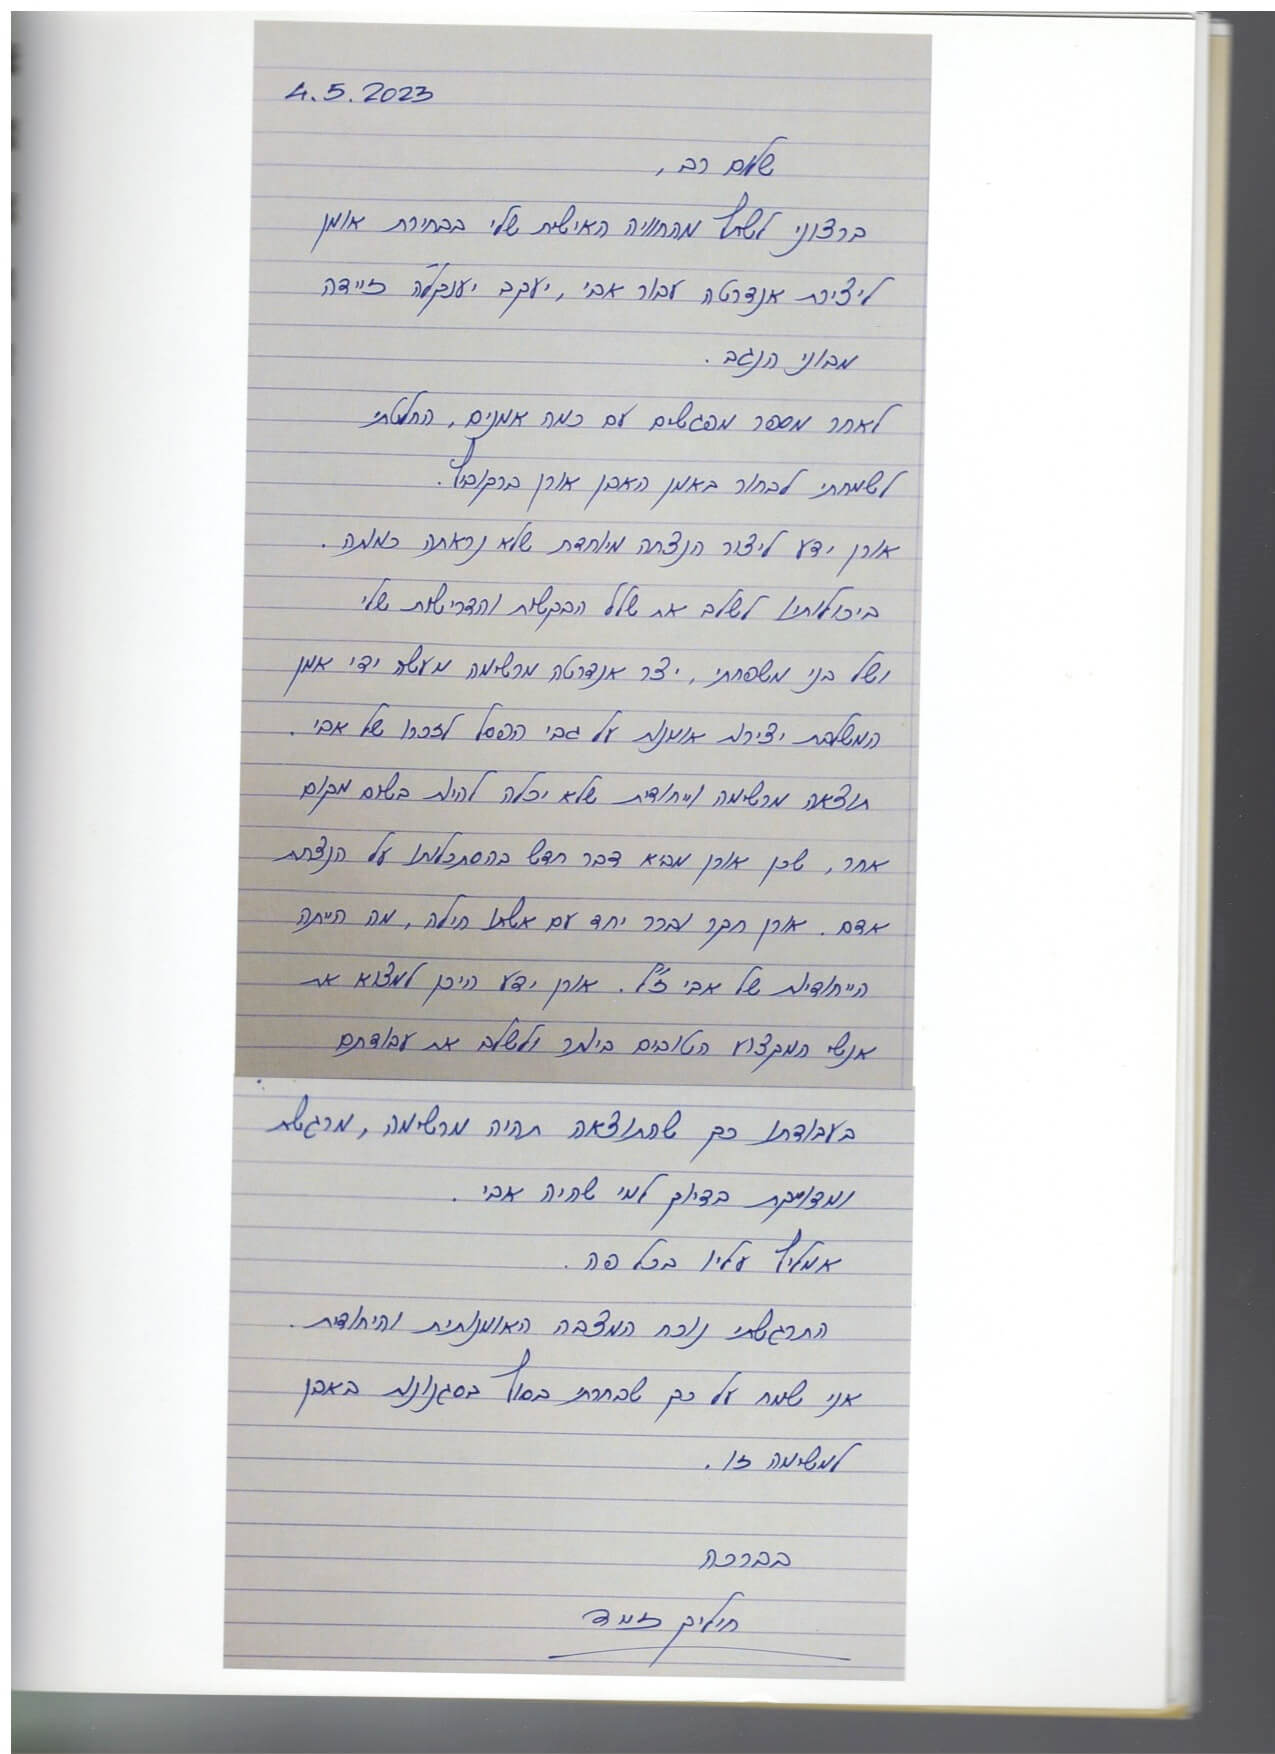 4.5.2023
שלום רב,
ברצוני לשתף מהחוויה האישית שלי בבחירת אומן
ליצירת אנדרטה עבור אבי, יעקב יענקל'ה זיידה
מבוני הנגב.
לאחר מספר מפגשים עם כמה אמנים, החלטתי
לשמחתי לבחור באמן האבן אורן ברקוביץ.
אורן ידע ליצור הנצחה מיוחדת שלא נראתה כמותה.
ביכולותיו לשלב את שלל הבקשות והדרישות שלי
ושל בני משפחתי, יצר אנדרטה מרשימה מעשה ידי אמן
המשלבת יצירות אומנות על גבי הפסל לזכרו של אבי.
תוצאה מרשימה וייחודית שלא יכלה להיות בשום מקום
אחר, שכן אורן מביא דבר חדש בהסתכלותו על הנצחת
אדם. אורן חקר וברר יחד עם אשתו הילה, מה הייתה
הייחודיות של אבי ז"ל. אורן ידע היכן למצוא את
אנשי המקצוע הטובים ביותר ולשלב את עבודתם
בעבודתו כך שהתוצאה תהיה מרשימה, מרגשת
ומדויקת בדיוק למי שהיה אבי.
אמליץ עליו בכל פה.
התרגשתי נוכח המצבה האומנותית והיחודית.
אני שמח על כך שבחרתי בסוף בסגנונות באבן
למשימה זו.
בברכה